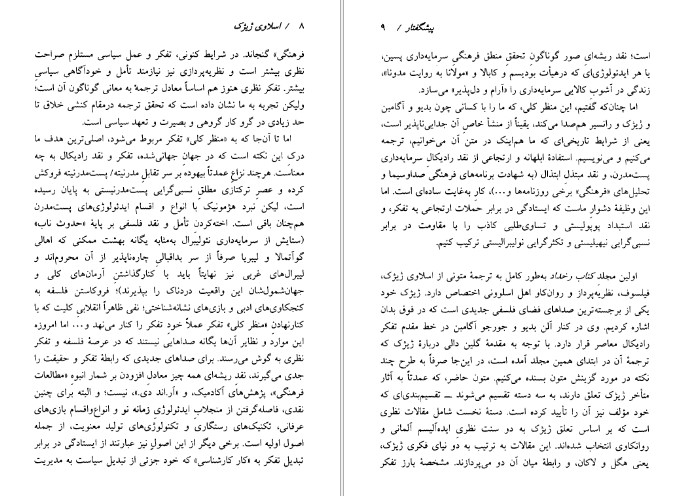 ۸ / اسلاوی ژیژک
فرهنگی» گنجاند. در شرایط کنونی، تفکر و عمل سیاسی مستلزم صراحت
نظری بیشتر است و نظریه‌پردازی نیز نیازمند تأمل و خودآگاهی سیاسی
بیشتر. تفکر نظری هنوز هم اساساً معادل ترجمهٔ به معانی گوناگون آن است؛
ولیکن تجربه به ما نشان داده است که تحقق ترجمه درمقام کنشی خلاق تا
حد زیادی در گرو کار گروهی و بصیرت و تعهد سیاسی است.
اما تا آن‌جا که به «منظر کلی» تفکر مربوط می‌شود، اصلی‌ترین هدف ما
درکِ این نکته است که در جهانِ جهانی‌شده، تفکر و نقد رادیکال به چه
معناست. هرچند نزاعِ عمدتاً بیهوده بر سر تقابلِ مدرنیته/ پست‌مدرنیته فروکش
کرده و عصرِ ترکتازی مطلق نسبی‌گرایی پست‌مدرنیستی به پایان رسیده
است، لیکن نبرد هژمونیک با انواع و اقسام ایدئولوژی‌های پست‌مدرن
هم‌چنان باقی است. اخته‌کردن تأمل و نقد فلسفی بر پایهٔ «حدوث ناب»
(ستایش از سرمایه‌داری نئولیبرال به‌مثابه یگانه بهشت ممکنی که اهالی
گوآتمالا و لیبریا صرفاً از سر بداقبالیِ چاره‌ناپذیر از آن محروم‌اند و
لیبرال‌های غربی نیز نهایتاً باید با کنارگذاشتنِ آرمان‌های کلی و
جهان‌شمول‌شان این واقعیت دردناک را بپذیرند)؛ فروکاستن فلسفه به
کنجکاوی‌های ادبی و بازی‌های نشانه‌شناختی؛ نفی ظاهراً انقلابی کلیت که با
کنارنهادنِ «منظر کلی» تفکر عملاً خودِ تفکر را کنار می‌نهد و... اما امروزه
این موارد و نظایر آن‌ها یگانه صداهایی نیستند که در عرصهٔ تفکر و عمل
نظری به گوش می‌رسند. برای صداهای جدیدی که رابطهٔ تفکر و حقیقت را
جدی می‌گیرند، نقد ریشه‌ای همه چیز معادلِ افزودن بر شمار انبوه «مطالعات
فرهنگی»، پژوهش‌های آکادمیک، و «ار.اند دی.»، نیست؛ و البته برای چنین
نقدی، فاصله‌گرفتن از منجلابِ ایدئولوژیِ زمانه نو و انواع‌واقسام بازی‌های
عرفانی، تکنیک‌های رستگاری و تکنولوژی‌های تولید معنویت، از جمله
اصول اولیه است. برخی دیگر از این اصولِ نیز عبارتند از ایستادگی در برابر
تبدیل تفکر به «کار کارشناسی» که خود جزئی از تبدیل سیاست به مدیریت
پیشگفتار / ۹
است؛ نقد ریشه‌ای صور گوناگون تحقق منطق فرهنگی سرمایه‌داری پسین،
یا هر ایدئولوژی‌ای که درهیأت بودیسم و کابالا و «مولانا به روایت مدونا»،
زندگی در آشوب کالایی سرمایه‌داری را «آرام و دل‌پذیر» می‌سازد.
اما چنان‌که گفتیم، این منظر کلی، که ما را با کسانی چون بدیو و آگامبن
و ژیژک و رانسیر هم‌صدا می‌کند، یقیناً از منشأ خاصِ آن جدایی‌ناپذیر است،
یعنی از شرایط تاریخی‌ای که ما هم‌اینک در متن آن می‌خوانیم، ترجمه
می‌کنیم و می‌نویسیم. استفادهٔ ابلهانه و ارتجاعی از نقد رادیکال سرمایه‌داری
پست‌مدرن، و نقد مبتذلِ ابتذال (به شهادت برنامه‌های فرهنگی صداوسیما و
تحلیل‌های «فرهنگی» برخی روزنامه‌ها و...)، کارِ به‌غایت ساده‌ای است.
این وظیفهٔ دشوارِ ماست که ایستادگی در برابر حملات ارتجاعی به تفکر، و
نقد استبداد پوپولیستی و تساوی‌طلبی کاذب را با مقاومت در برابر
نسبی‌گرایی نیهیلیستی و تکثرگرایی نولیبرالیستی ترکیب کنیم.
اولین مجلد کتاب رخداد به‌طور کامل به ترجمهٔ متونی از اسلاوی ژیژک،
فیلسوف، نظریه‌پرداز و روان‌کاو اهل اسلوونی اختصاص دارد. ژیژک خود
یکی از برجسته‌ترین صداهای فضای فلسفی جدیدی است که در فوق بدان
اشاره کردیم. وی در کنار آلن بدیو و جورجو آگامبن در خط مقدم تفکر
رادیکال معاصر قرار دارد. با توجه به مقدمهٔ گلین دالی دربارهٔ ژیژک که
ترجمهٔ آن در ابتدای همین مجلد آمده است، در این‌جا صرفاً به طرح چند
نکته در مورد گزینش متون بسنده می‌کنیم. متون حاضر، که عمدتاً به آثار
متأخر ژیژک تعلق دارند، به سه دسته تقسیم می‌شوند ـ تقسیم‌بندی‌ای که
خود مؤلف نیز آن را تأیید کرده است. دستهٔ نخست شامل مقالات نظری
است که بر اساس تعلق ژیژک به دو سنت نظری ایده‌آلیسم آلمانی و
روانکاوی انتخاب شده‌اند. این مقالات به ترتیب به دو نیای فکری ژیژک،
یعنی هگل و لاکان، و رابطهٔ میان آن دو می‌پردازند. مشخصهٔ بارز تفکر